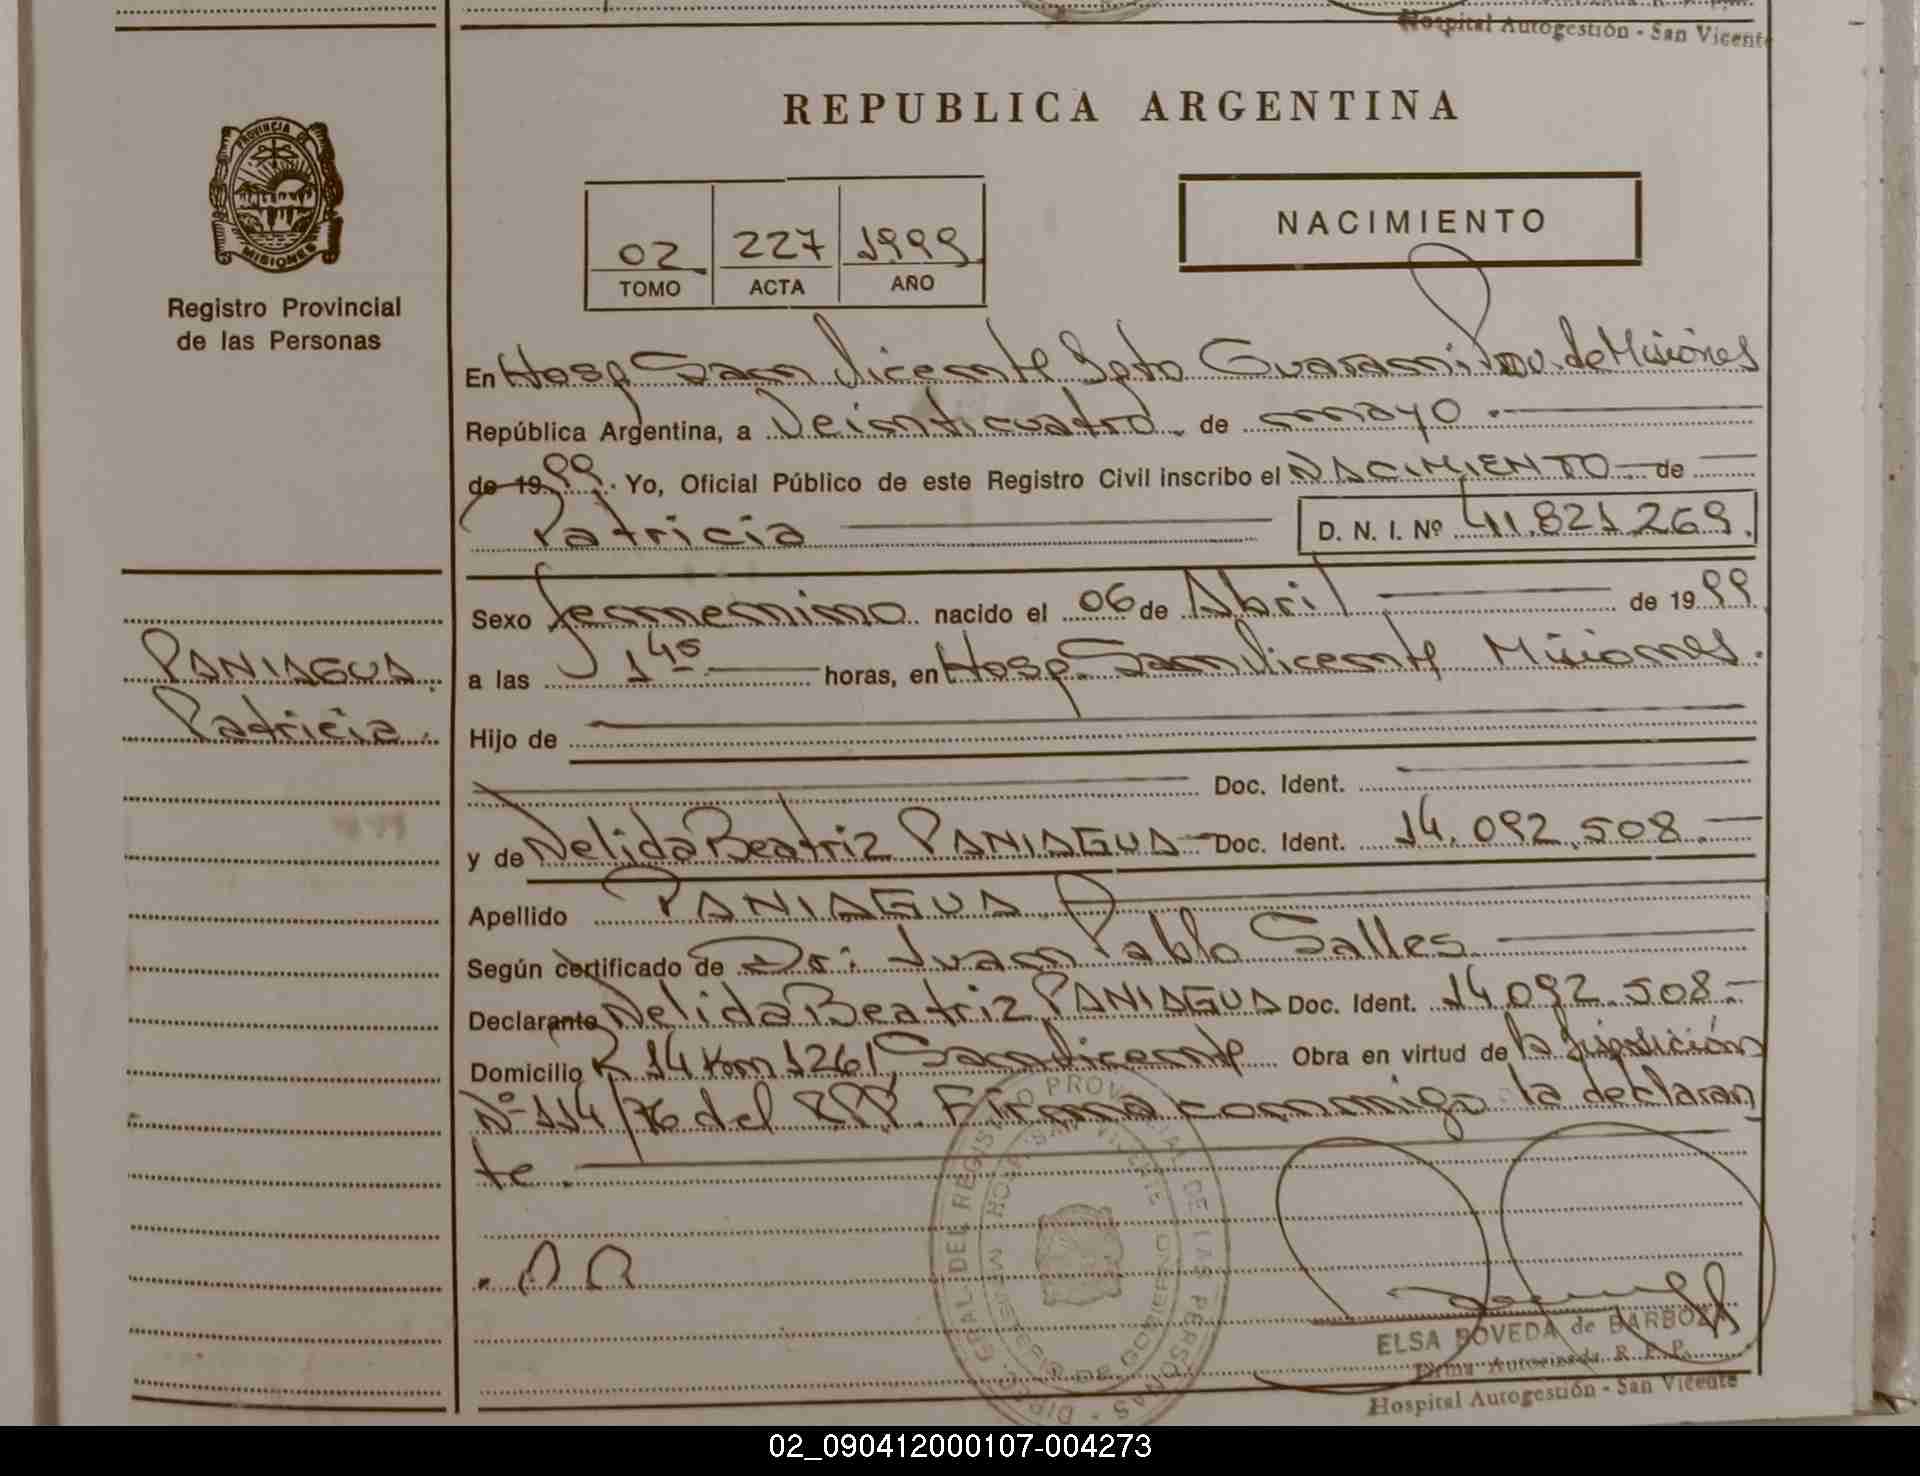 Hospital Autogestión - San Vicente
REPUBLICA ARGENTINA
PROVINCIA DE
MISIONES
Registro Provincial
de las Personas
02 227 1999
TOMO ACTA AÑO
NACIMIENTO
En Hosp San Vicente Dpto Guarani Prov. de Misiones
República Argentina, a Veinticuatro. de mayo.
de 1999. Yo, Oficial Público de este Registro Civil inscribo el NACIMIENTO de
Patricia D. N. I. Nº 41.821.269.
Sexo femenino nacido el 06 de Abril de 1999
PANIAGUA.
Patricia.
a las 1 45 horas, en Hosp. San Vicente Misiones.
Hijo de
Doc. Ident.
y de Nelida Beatriz PANIAGUA Doc. Ident. 14.092.508.
Apellido PANIAGUA
Según certificado de Dr: Juan Pablo Salles
Declarante Nelida Beatriz PANIAGUA Doc. Ident. 14.092.508.
Domicilio R 14 Km 1261, San Vicente Obra en virtud de la disposición
Nº 114/76 del RPP. Firma conmigo la declaran
te.
DIREC. GRAL. DEL REGISTRO PROVINCIAL DE LAS PERSONAS
HOSP. SAN VICENTE
MINISTERIO DE GOBIERNO
ELSA POVEDA de BARBOZA
Firma Autorizada R. P. P.
Hospital Autogestión - San Vicente
02_090412000107-004273